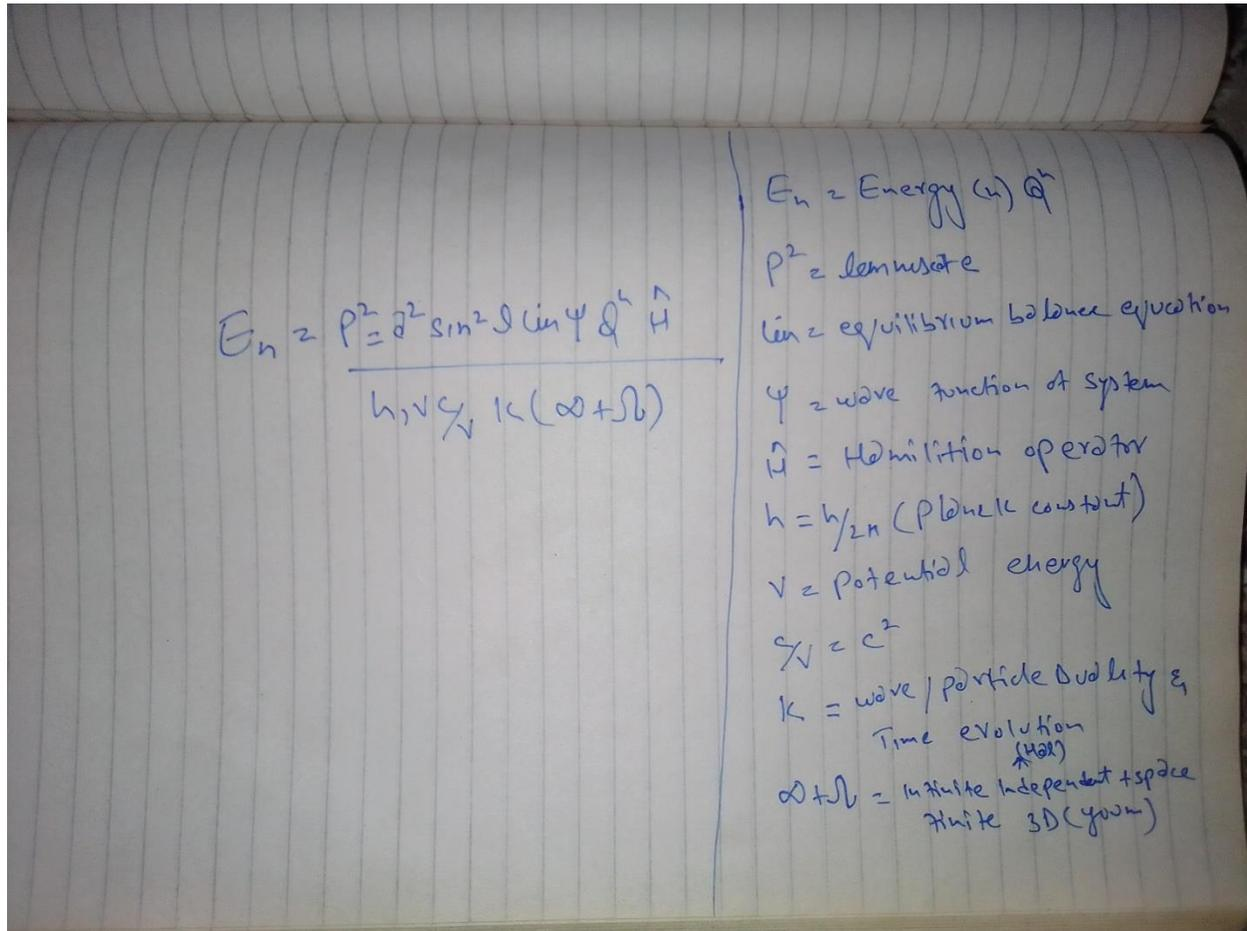 Eₙ = P² = a² sin² θ lin Ψ Qⁿ Ĥ
h, v c/v K (∞ + Ω)
Eₙ = Energy (n) Qⁿ
P² = lemnusate
lin = equilibrium balance equcation
Ψ = wave function of system
Ĥ = Hamilition operator
h = h/2π (Planck constant)
V = Potential energy
c/v = c²
K = wave / particle Duality &
Time evolution
(Hal)
∞ + Ω = infinite independent + space
finite 3D (youm)